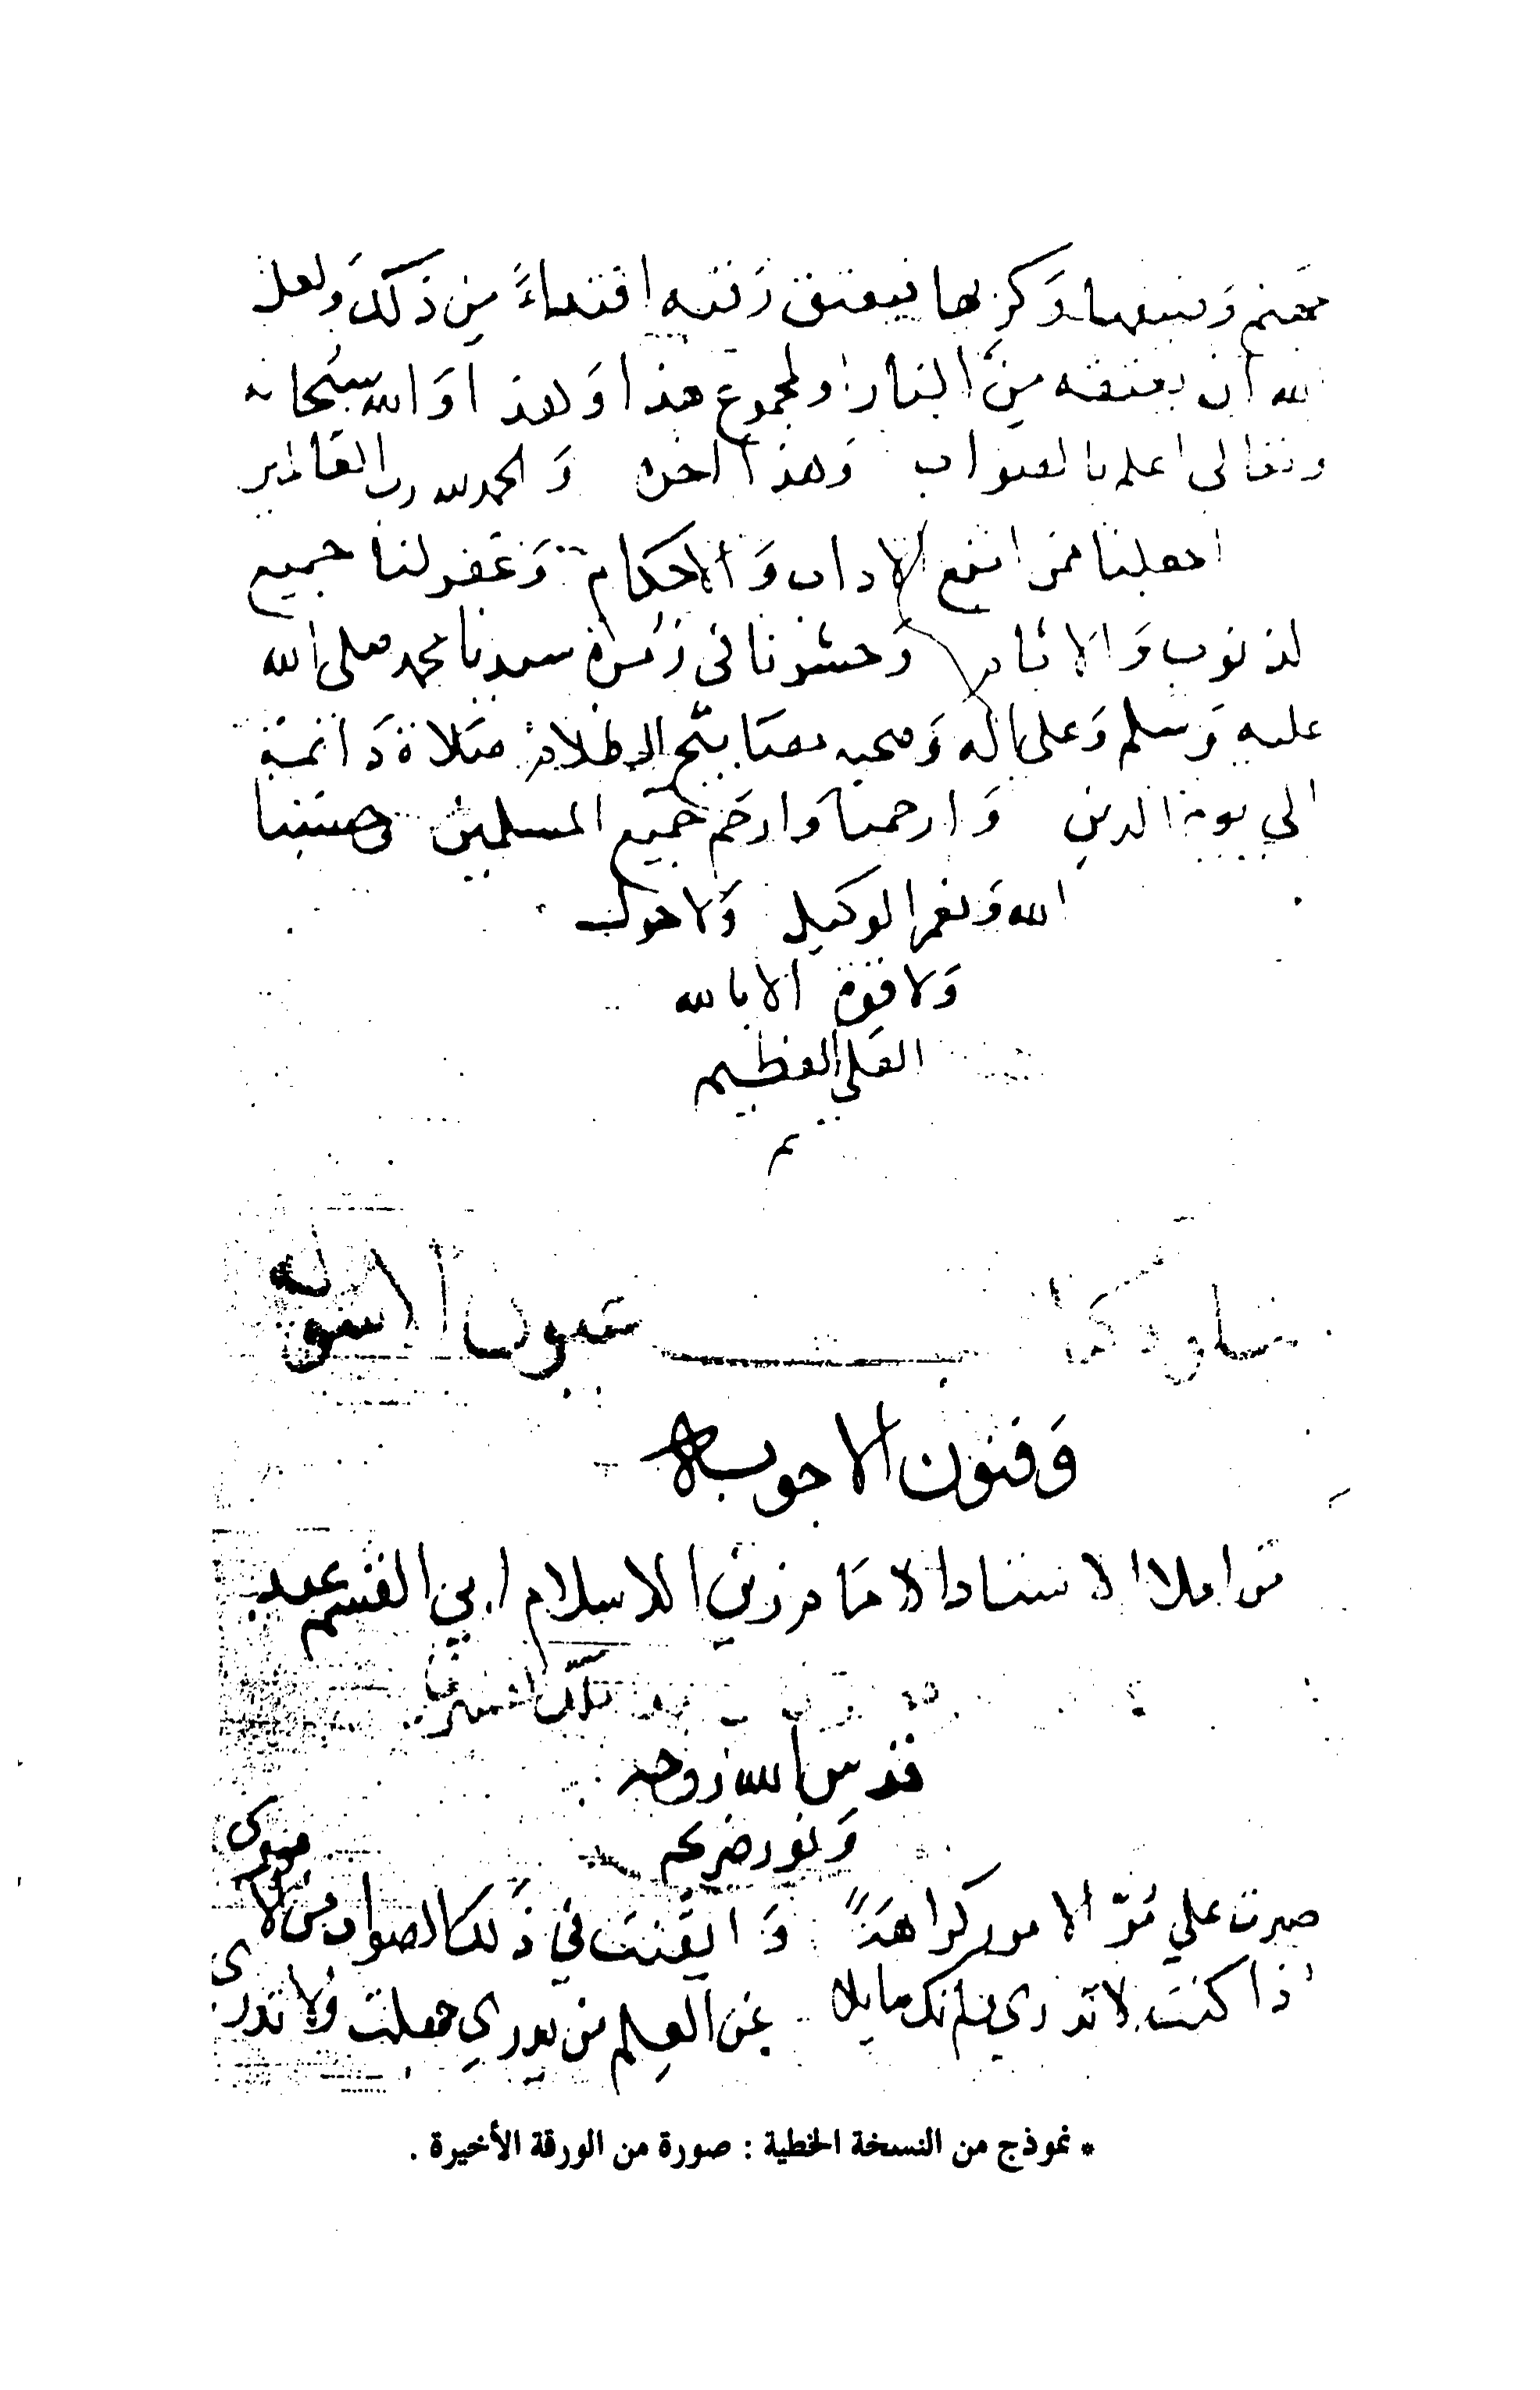 جهنم ونتنها وكربها فيعتق رقبه افتداءً من ذلك ولعل
الله ان يعتقه من النار او لمجموع هذا وهذا وَالله سبحانه
وتعالى اعلم بالصواب وَهذا اخره وَالحمد لله رب العالمين
اجعلنا ممن اتبع الاداب وَالاحكام وَغفر لنا جميع
لذنوب وَالاثام وَحشرنا في زمرة سيدنا محمد صلى الله
عليه وَسلم وَعلى اله وَصحبه مصابيح الظلام صَلاة دَائمة
الي يوم الدين وَارحمنا وَارحم جميع المسلمين حسبنا
الله وَنعم الوكيل وَلا حول
وَلا قوة الا بالله
العلي العظيم
تم
عيون الاسولة
وَفنون الاجوبة
من املا الاستاد الامام زين الاسلام ابي القسم عبد
قدس الله روحه
وَنور ضريحه
صبرت علي مُرّ الامور كراهةً وَايقنت في ذلك الصواب من الامر
اذا كنت لا تدري ولم تك سايلا عن العلم من يدري جهلت ولا تدري
* نموذج من النسخة الخطية : صورة من الورقة الأخيرة .